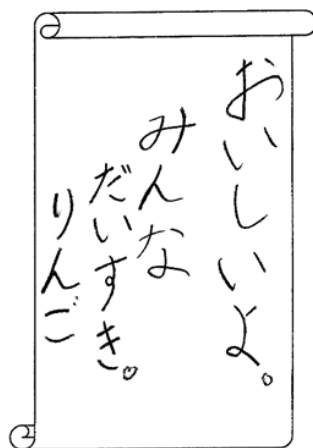 おいしいよ。
みんな
だいすき。
りんご